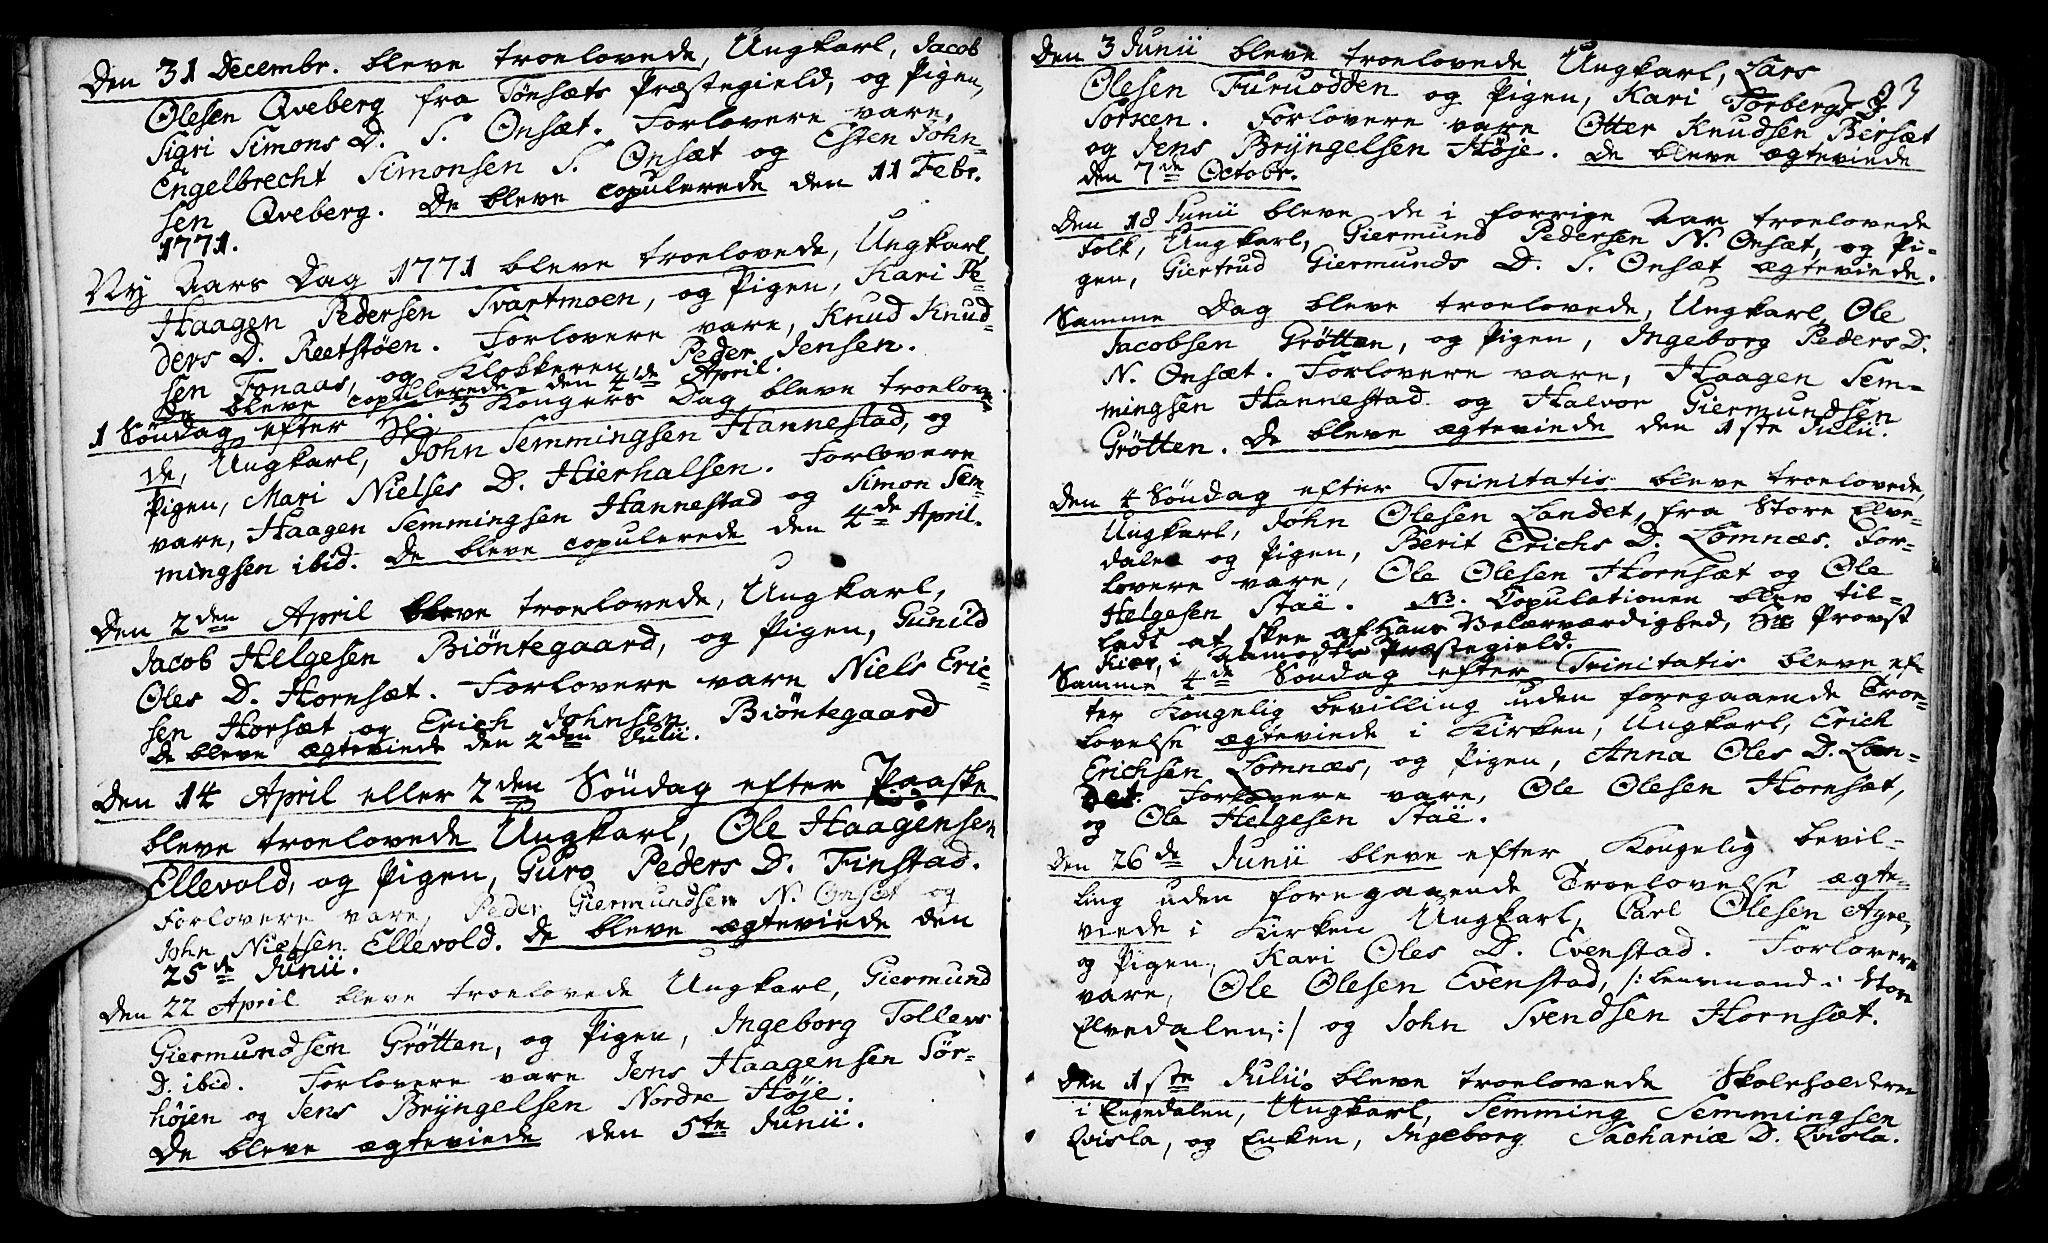 Den 31 Decembr. bleve troelovede, Ungkarl, Jacob
Olesen Qveberg fra Tönsæts Præstegield, og Pigen,
Sigri Simons D. S. Onsæt. Forlovere vare,
Engelbrecht Simonsen S. Onsæt og Esten John-
sen Qveberg. De bleve copulerede den 11 Febr.
1771.
Ny Aars Dag 1771 bleve troelovede, Ungkarl,
Haagen Pedersen Svartmoen, og Pigen, Kari Pe-
ders D. Reetstøen. Forlovere vare, Knud Knud-
sen Fonaas, og Klokkeren Peder Jensen.
De bleve copulerede den 4de April.
1 Söndag efter Hel. 3 Kongers Dag bleve troelove-
de, Ungkarl, John Semmingsen Hannestad, og
Pigen, Mari Nielses D. Hierhalsen. Forlovere
vare, Haagen Semmingsen Hannestad og Simon Sem-
mingsen ibid. De bleve copulerede den 4de April.
Den 2den April bleve troelovede, Ungkarl,
Jacob Helgesen Biöntegaard, og Pigen, Gunild
Oles D. Hornsæt. Forlovere vare Niels Eric-
sen Horsæt og Erich Johnsen Biöntegaard
De bleve ægteviede den 2den Julii.
Den 14 April eller 2den Söndag efter Paaske
bleve troelovede Ungkarl, Ole Haagensen
Ellevold, og Pigen, Guro Peders D. Finstad.
Forlovere vare, Peder Giermundsen N. Onsæt og
John Nielsen Ellevold. De bleve ægteviede den
25de Junii.
Den 22 April bleve troelovede Ungkarl, Giermund
Giermundsen Gröttten, og Pigen, Ingeborg Tollevs
D. ibid. Forlovere vare Jens Haagensen Sör-
höjen og Jens Bryngelsen Nordre Höje.
De bleve ægteviede den 5te Junii.
Den 3 Junii bleve troelovede Ungkarl, Lars
Olesen Furuodden og Pigen, Kari Torbergs D.
Sorken. Forlovere vare Otter Knudsen Bersæt
og Jens Bryngelsen Höje. De bleve ægteviede
den 7de Octobr.
Den 18 Junii bleve de i forrige Aar troelovede
Folk, Ungkarl, Giermund Pedersen N. Onsæt, og Pi-
gen, Giertrud Giermunds D. S. Onsæt ægteviede.
Samme Dag bleve troelovede, Ungkarl, Ole
Jacobsen Gröttten, og Pigen, Ingeborg Peders D.
N. Onsæt. Forlovere vare, Haagen Sem-
mingsen Hannestad og Halvor Giermundsen
Grötten. De bleve ægteviede den 1ste Julii.
Den 4 Söndag efter Trinitatis bleve troelovede,
Ungkarl, John Olesen Landet, fra Store Elve-
dalen og Pigen, Berit Erichs D. Lomnæs. For-
lovere vare, Ole Olesen Hornsæt og Ole
Helgesen Staë. NB. Copulationen blev til-
ladt at skee af Hans Velærværdighed, Hr Provst
Kiær, i Aamodts Præstegield.
Samme 4de Söndag efter Trinitatis bleve ef-
ter Kongelig bevilling uden foregaaende Troe-
lovelse ægteviede i Kirken, Ungkarl, Erich
Erichsen Lomnæs, og Pigen, Anna Oles D. Lan-
det. Forlovere vare, Ole Olesen Hornsæt,
og Ole Helgesen Staë.
Den 26de Junii bleve efter Kongelig bevil-
ling uden foregaaende Troelovelse ægte-
viede i Kirken Ungkarl, Carl Olesen Agre,
og Pigen, Kari Oles D. Evenstad. Forlovere
vare, Ole Olesen Evenstad, /: Lensmand i Store
Elvedalen :/ og John Svendsen Hornsæt.
Den 1ste Julii bleve troelovede Skoleholderen
i Engedalen, Ungkarl, Semming Semmingsen
Qvisla, og Enken, Ingeborg Zachariæ D. Qvisla.